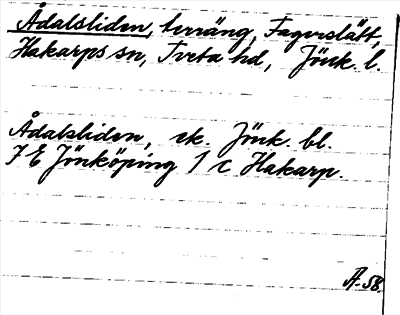 Ådalsliden, terräng, Fagerslätt,
Hakarps sn, Tveta hd, Jönk. l.
Ådalsliden, ek. Jönk. bl.
7 E Jönköping 1 c Hakarp.
Å-58.